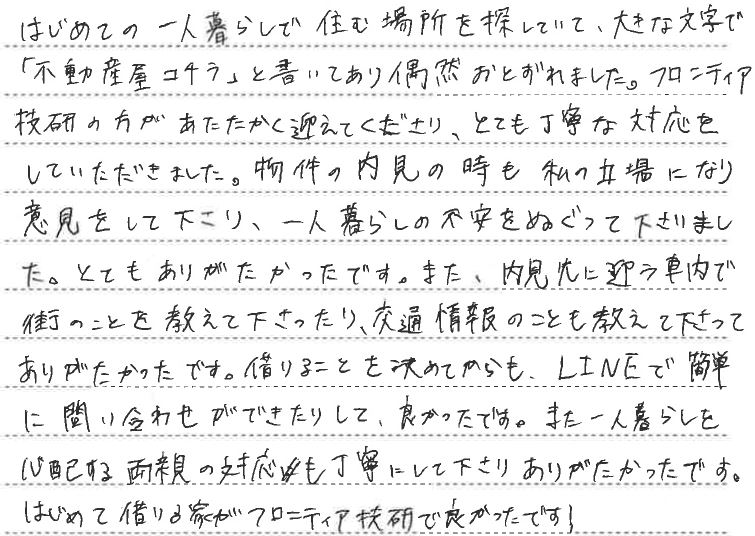 はじめての一人暮らしで住む場所を探していて、大きな文字で
「不動産屋コチラ」と書いてあり偶然おとずれました。フロンティア
技研の方があたたかく迎えてくださり、とても丁寧な対応を
していただきました。物件の内見の時も私の立場になり
意見をして下さり、一人暮らしの不安をぬぐって下さいまし
た。とてもありがたかったです。また、内見先に迎う車内で
街のことを教えて下さったり、交通情報のことも教えて下さって
ありがたかったです。借りることを決めてからも、LINEで簡単
に問い合わせができたりして、良かったです。また一人暮らしを
心配する両親の対応も丁寧にして下さりありがたかったです。
はじめて借りる家がフロンティア技研で良かったです!